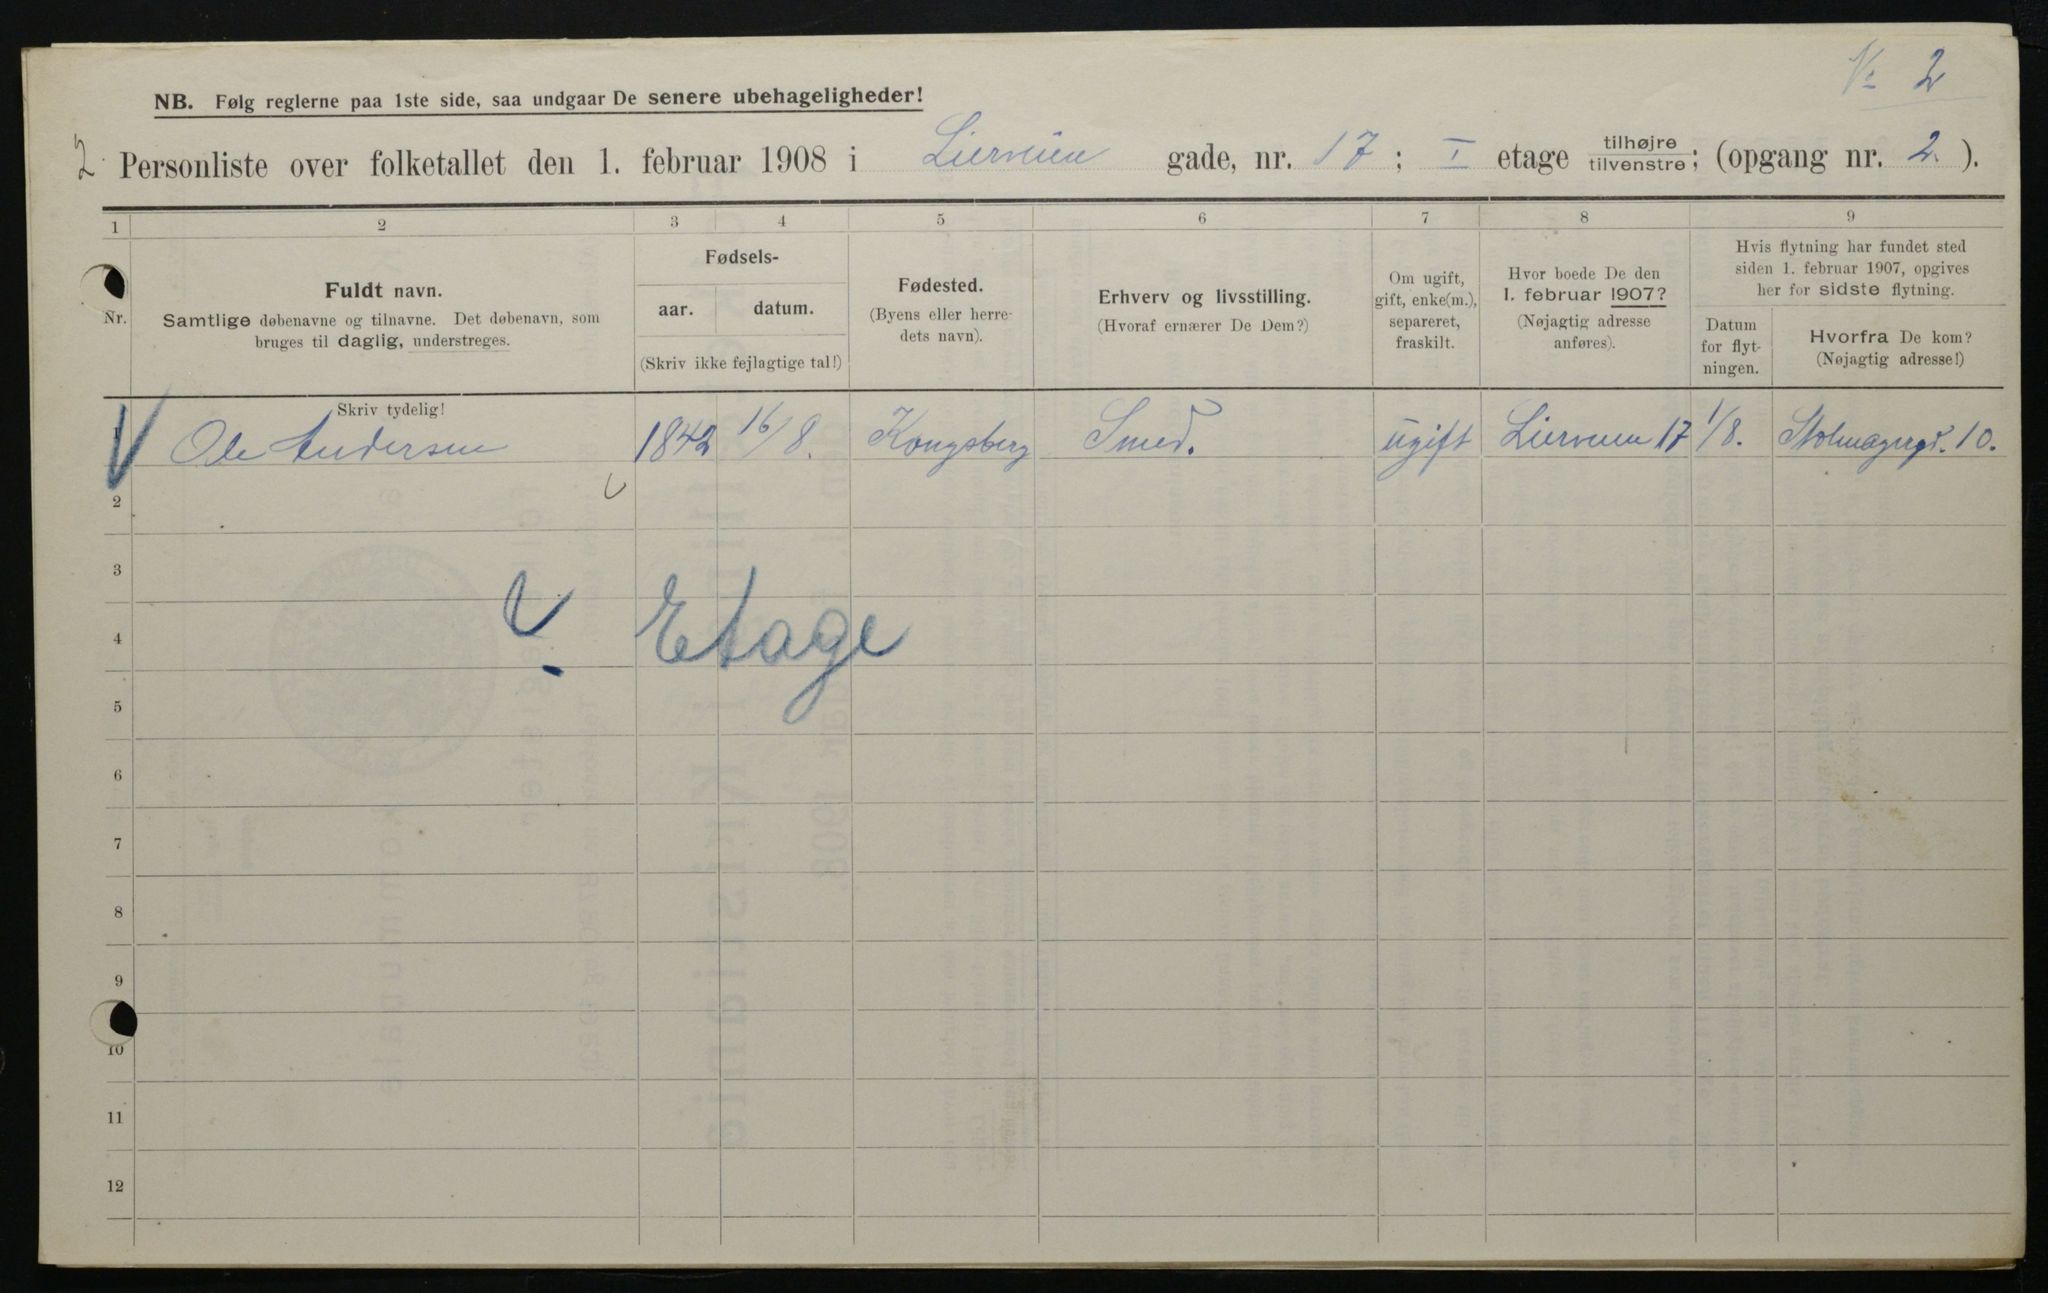 No 2
NB. Følg reglerne paa 1ste side, saa undgaar De senere ubehageligheder!
2
Personliste over folketallet den 1. februar 1908 i Lierveien gade, nr. 17; I etage tilhøjre/tilvenstre; (opgang nr. 2.).
1 2 3 4 5 6 7 8 9
Nr.
Fuldt navn.
Samtlige døbenavne og tilnavne. Det døbenavn, som
bruges til daglig, understreges.
Fødsels-
aar. datum.
(Skriv ikke fejlagtige tal!)
Fødested.
(Byens eller herre-
dets navn).
Erhverv og livsstilling.
(Hvoraf ernærer De Dem?)
Om ugift,
gift, enke(m.),
separeret,
fraskilt.
Hvor boede De den
1. februar 1907?
(Nøjagtig adresse
anføres).
Hvis flytning har fundet sted
siden 1. februar 1907, opgives
her for sidste flytning.
Datum
for flyt-
ningen.
Hvorfra De kom?
(Nøjagtig adresse!)
Skriv tydelig!
1 Ole Andersen 1842 16/8. Kongsberg Smed. ugift Lierveien 17 1/8. Stolmagergd. 10.
2
3
4
Etage
5
6
7
8
9
10
11
12